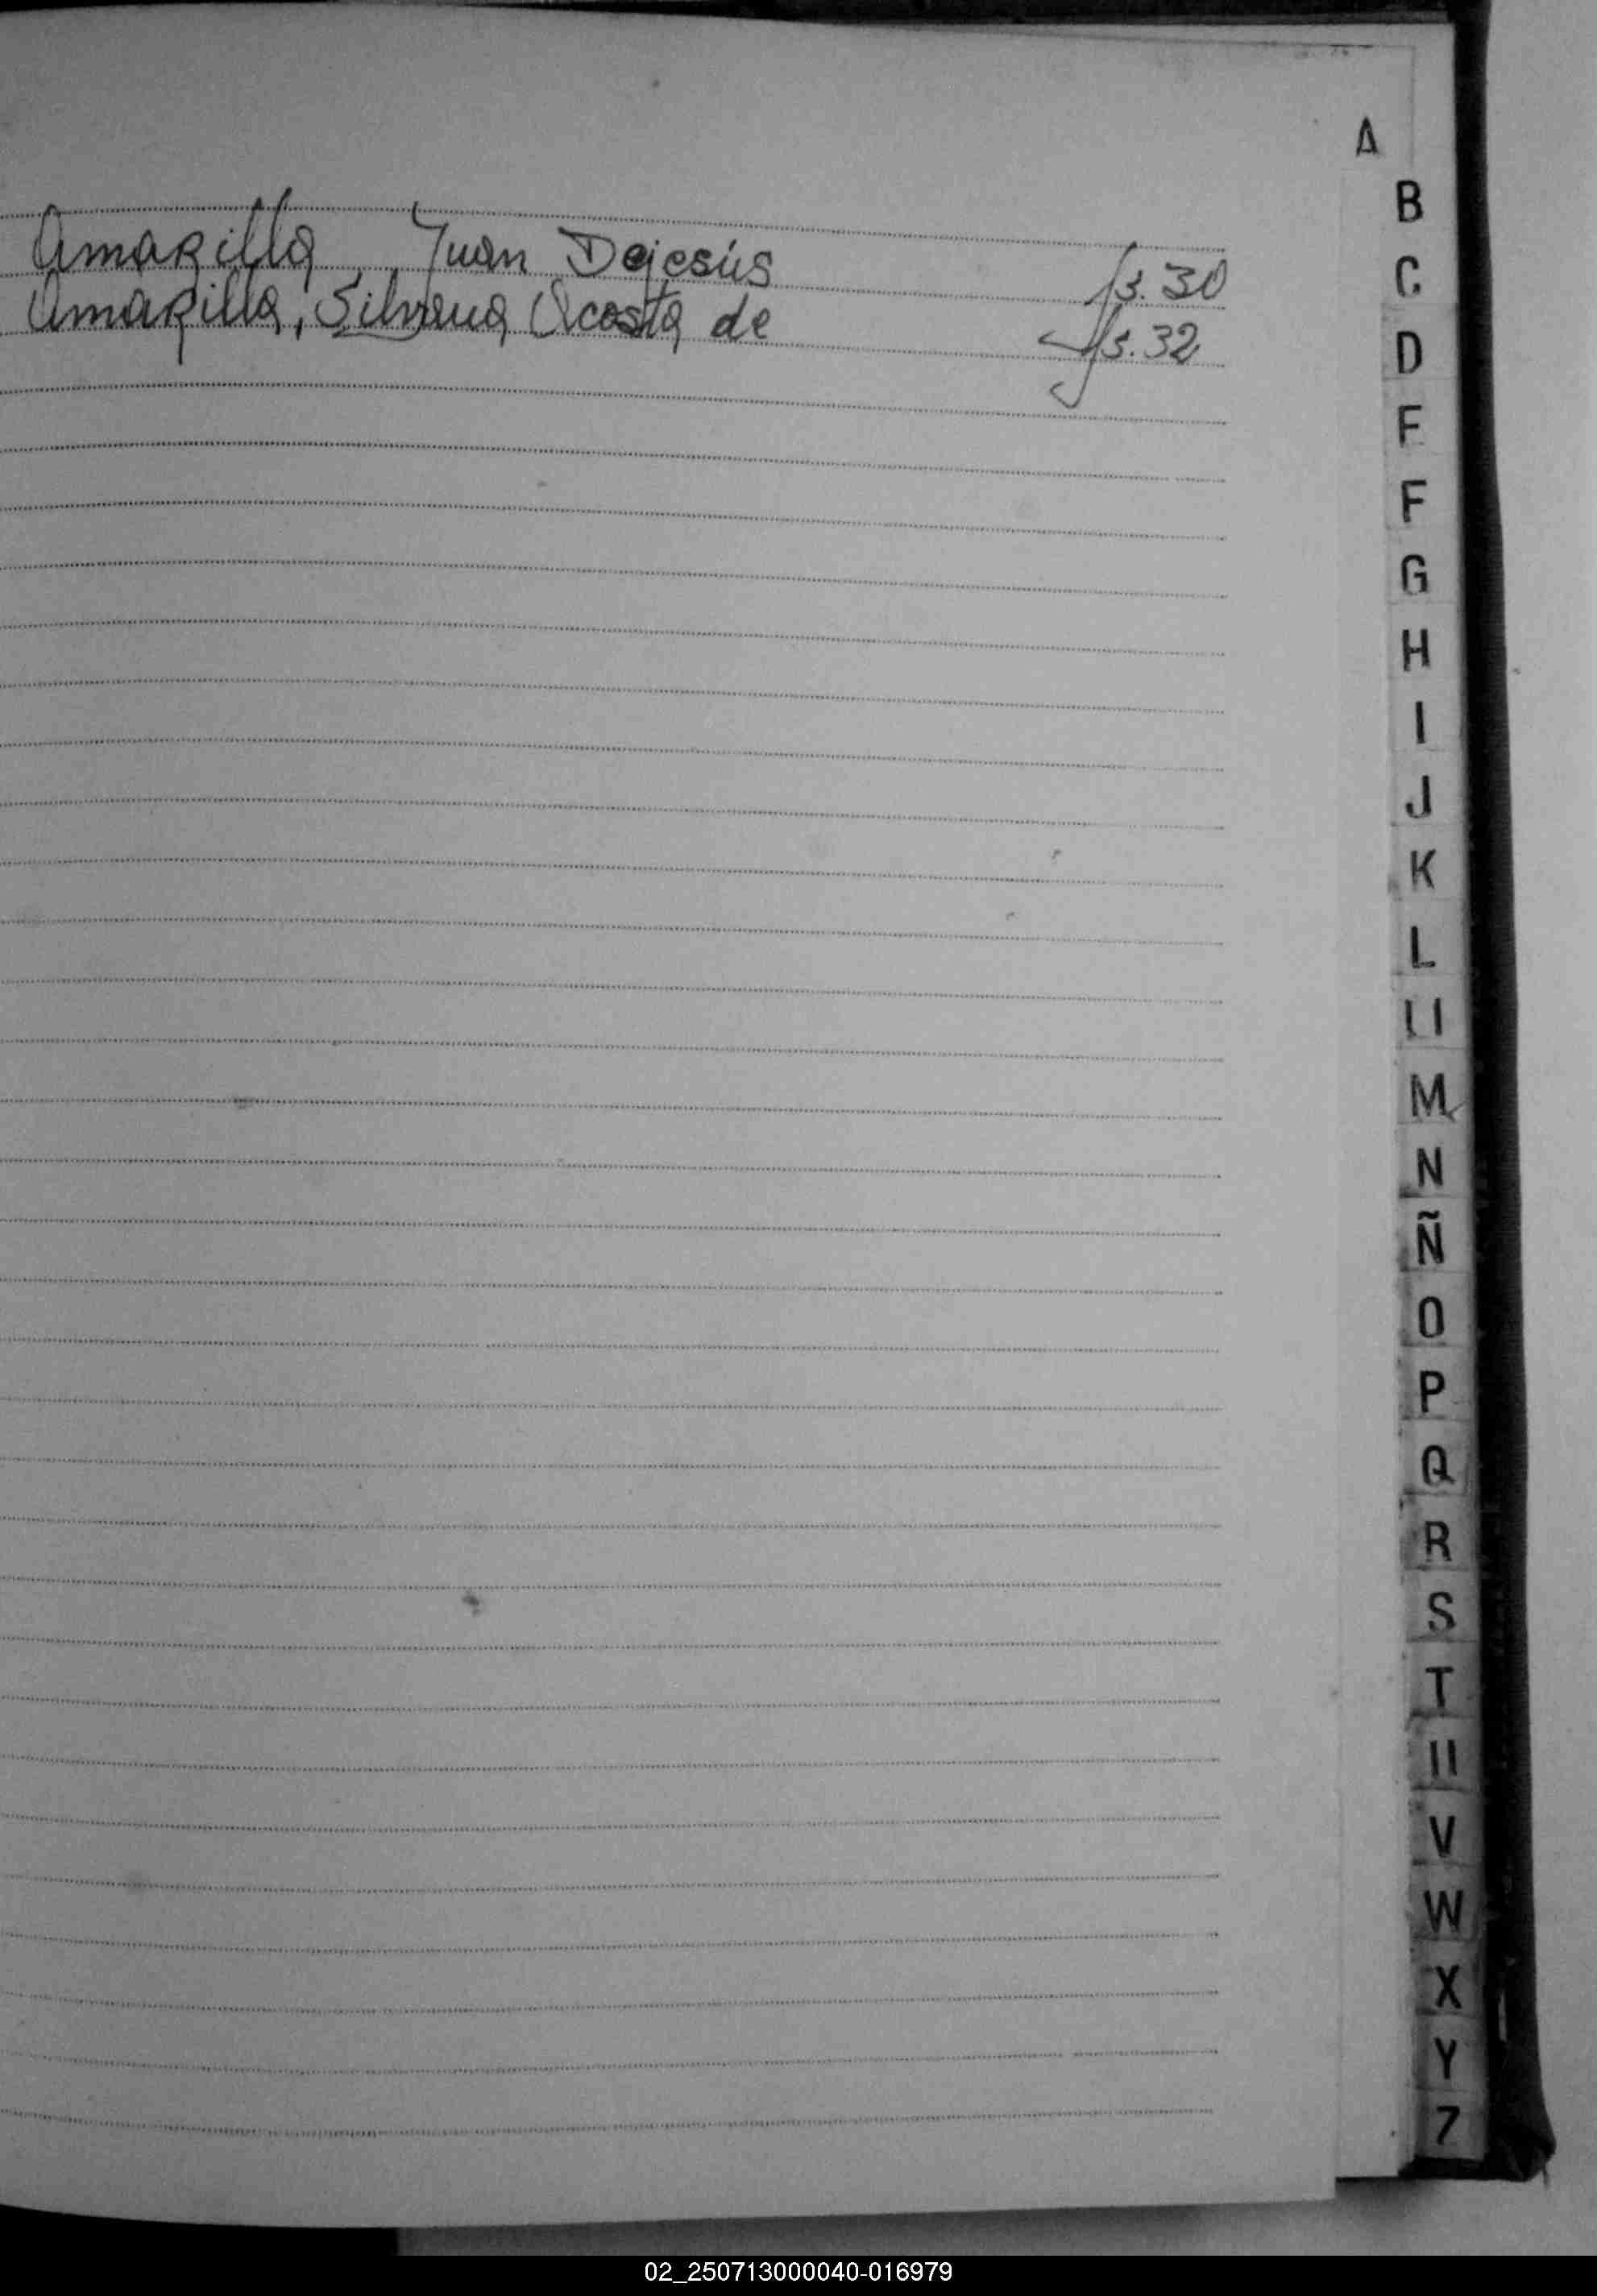 A
Amarilla, Juan Dejesús fs. 30
Amarilla, Silvana Acosta de fs. 32
B
C
D
E
F
G
H
I
J
K
L
Ll
M
N
Ñ
O
P
Q
R
S
T
U
V
W
X
Y
Z
02_250713000040-016979